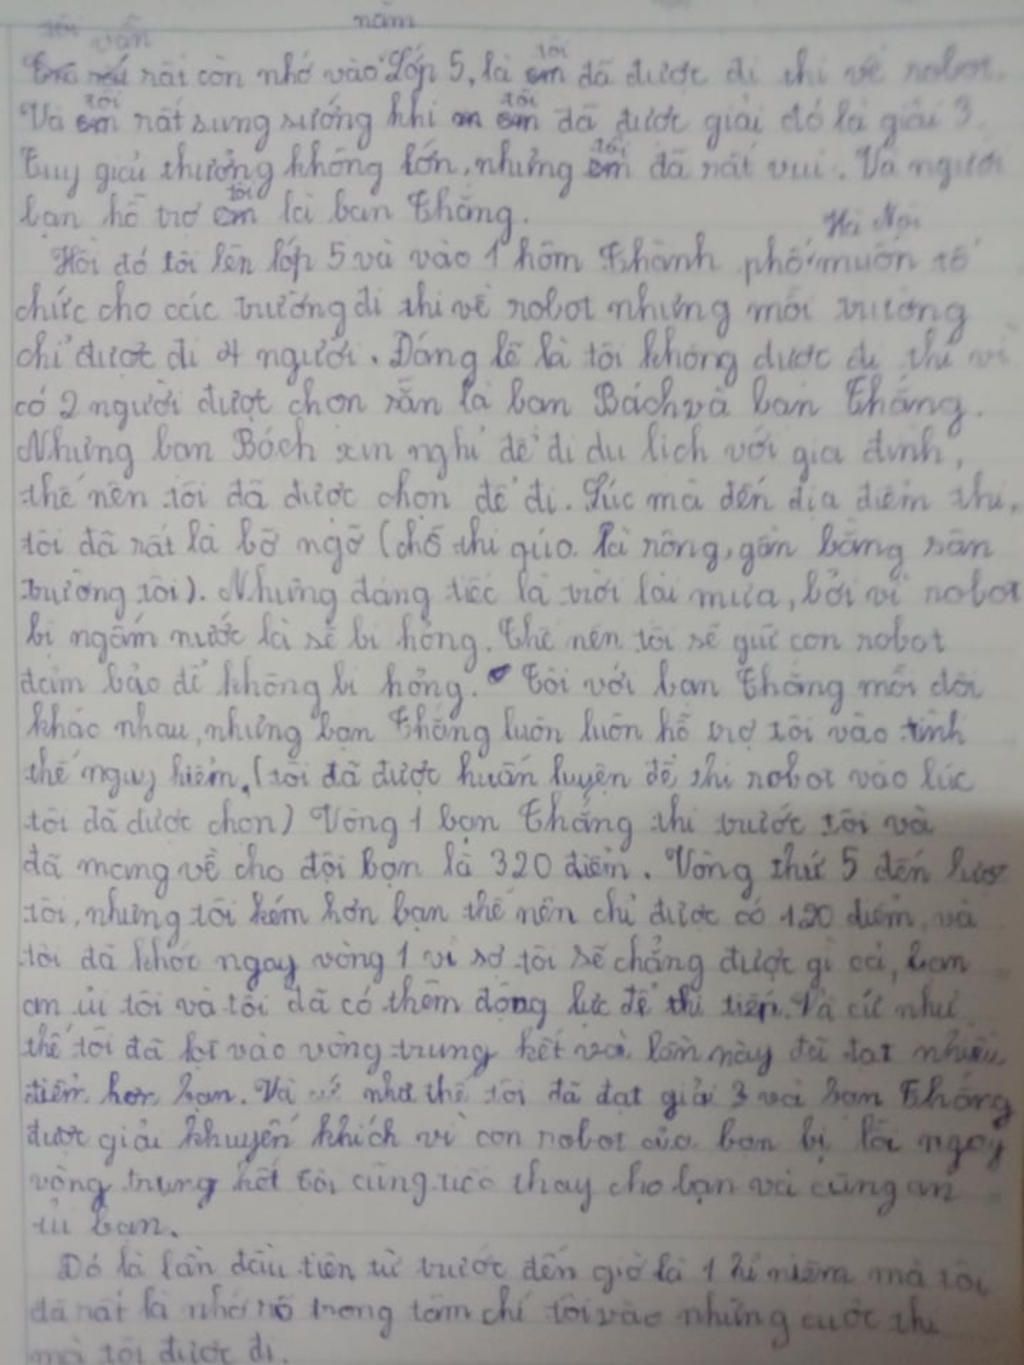 tôi vẫn năm
rất còn nhớ vào Lớp 5, là tôi đã được đi thi về robot.
Và tôi rất sung sướng khi tôi đã được giải đó là giải 3.
Tuy giải thưởng không lớn, nhưng tôi đã rất vui. Và người
bạn hỗ trợ tôi là bạn Thắng.
Hà Nội
Hồi đó tôi lên lớp 5 và vào 1 hôm Thành phố muốn tổ
chức cho các trường đi thi về robot nhưng mỗi trường
chỉ được đi 4 người. Đáng lẽ là tôi không được đi thi vì
có 2 người được chọn sẵn là bạn Bách và bạn Thắng.
Nhưng bạn Bách xin nghỉ để đi du lịch với gia đình,
thế nên tôi đã được chọn để đi. Lúc mà đến địa điểm thi,
tôi đã rất là bỡ ngỡ (chỗ thi qúa là rộng, gần bằng sân
trường tôi). Nhưng đáng tiếc là trời lại mưa, bởi vì robot
bị ngấm nước là sẽ bị hỏng. Thế nên tôi sẽ giữ con robot
đảm bảo để không bị hỏng. Tôi với bạn Thắng mỗi đội
khác nhau, nhưng bạn Thắng luôn luôn hỗ trợ tôi vào tình
thế nguy hiểm. (tôi đã được huấn luyện để thi robot vào lúc
tôi đã được chọn) Vòng 1 bạn Thắng thi trước tôi và
đã mang về cho đội bạn là 320 điểm. Vòng thứ 5 đến lượt
tôi, nhưng tôi kém hơn bạn thế nên chỉ được có 120 điểm, và
tôi đã khóc ngay vòng 1 vì sợ tôi sẽ chẳng được gì cả, bạn
an ủi tôi và tôi đã có thêm động lực để thi tiếp. Và cứ như
thế tôi đã lọt vào vòng trung kết và lần này đã đạt nhiều
điểm hơn bạn. Và cứ như thế tôi đã đạt giải 3 và bạn Thắng
được giải khuyến khích vì con robot của bạn bị lỗi ngay
vòng trung kết tôi cũng tiếc thay cho bạn và cũng an
ủi bạn.
Đó là lần đầu tiên từ trước đến giờ là 1 kỉ niệm mà tôi
đã rất là nhớ rõ trong tâm chí tôi vào những cuộc thi
mà tôi được đi.